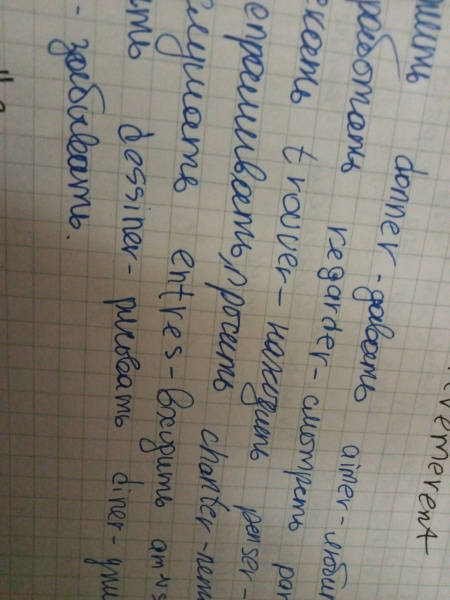 шить donner - давать aimer - люби
работать regarder - смотреть par
екать trouver - находить penser -
спрашивать, просить chanter - пет
слушать entres - входить
ть dessiner - рисовать diner - ужи
- забывать.